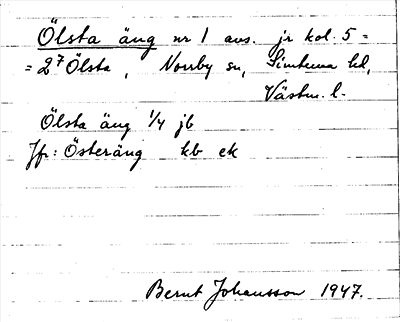 Ölsta äng nr 1 avs. jr kol. 5 =
= 2⁷ Ölsta, Norrby sn, Simtuna hd,
Västm. l.
Ölsta äng 1/4 jb
Jfr: Österäng kb ek
Bernt Johansson 1947.